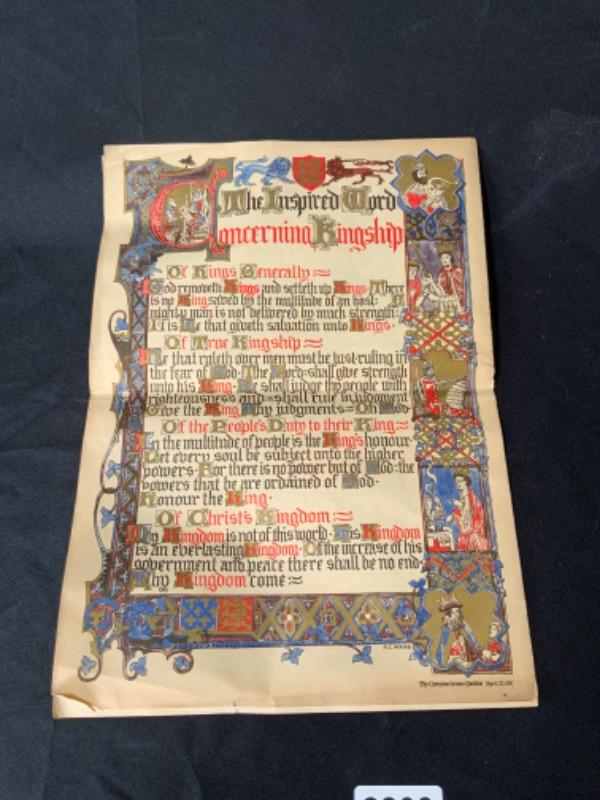 The Inspired Word
Concerning Kingship
Of Kings Generally
God removeth Kings and setteth up Kings. There
is no King saved by the multitude of an host: A
mighty man is not delivered by much strength:
It is He that giveth salvation unto Kings.
Of True Kingship
He that ruleth over men must be just, ruling in
the fear of God. The Lord shall give strength
unto his King. He shall judge thy people with
righteousness and shall rule in judgment
Give the King Thy judgments Oh God
Of the People's Duty to their King
In the multitude of people is the King's honour
Let every soul be subject unto the higher
powers. For there is no power but of God: the
powers that be are ordained of God.
Honour the King.
Of Christ's Kingdom
My Kingdom is not of this world. His Kingdom
is an everlasting Kingdom. Of the increase of his
government and peace there shall be no end.
Thy Kingdom come